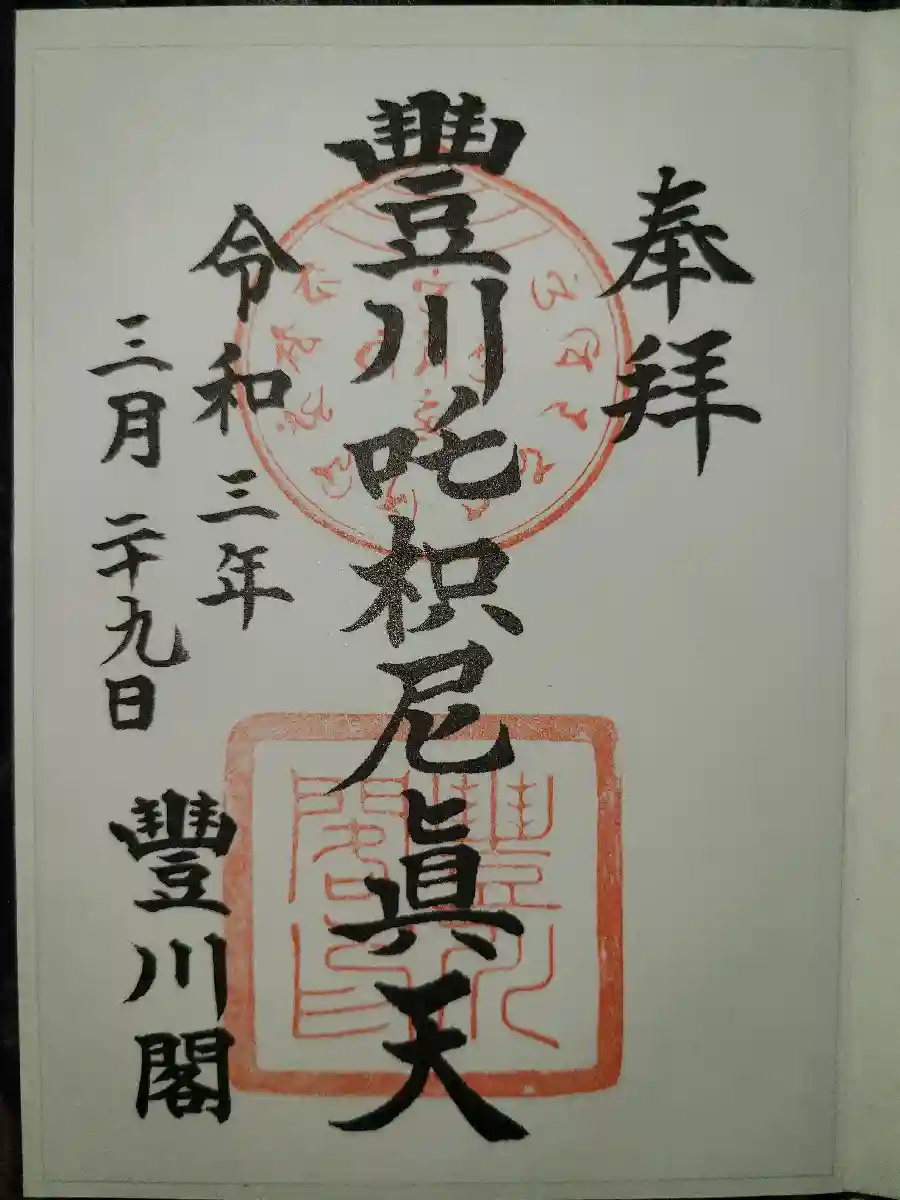 奉拜
豐川吒枳尼眞天
令和三年
三月二十九日
豐川閣
豐川閣印